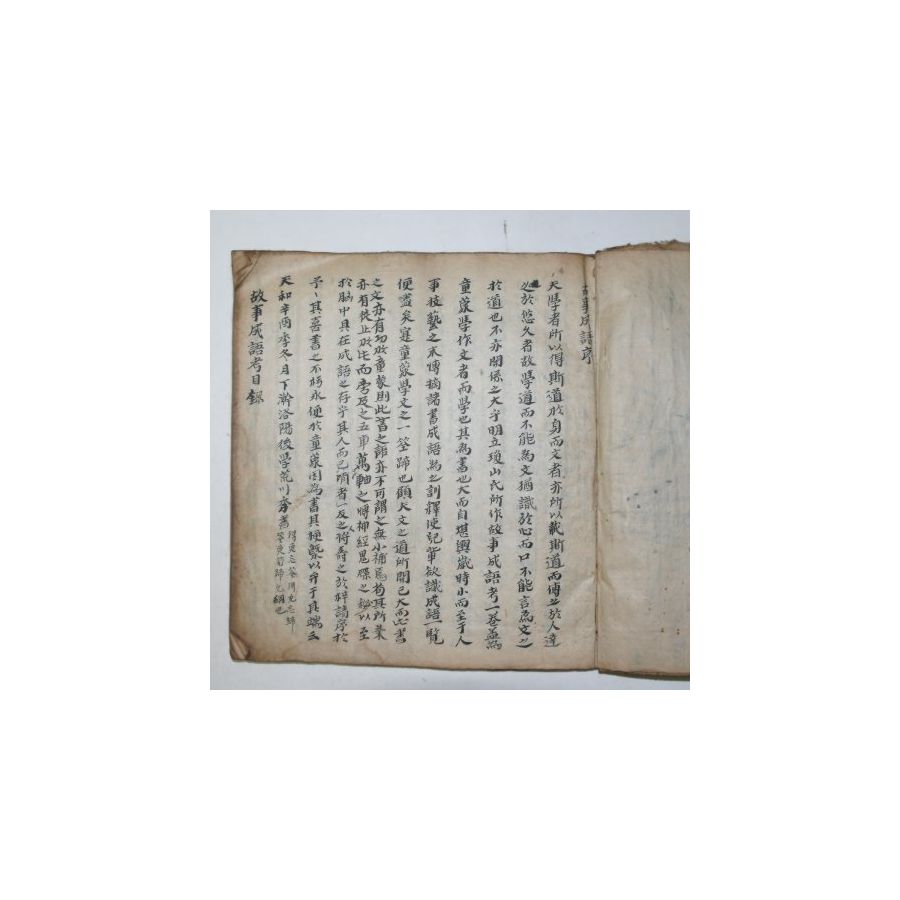 故事成語序
夫學者所以得斯道於身而文者亦所以載斯道而傳之於人達
之於悠久者故學道而不能為文猶識於心而口不能言為文之
於道也不亦關係之大乎明丘瓊山氏所作故事成語考一卷蓋為
童蒙學作文者而學也其為書也大而自堪輿歲時小而至于人
事技藝之末博摘諸書成語為之訓釋使兒輩欲識成語一覧
便盡矣寔童蒙學文之一筌蹄也顧夫文之道所關已大而此書
之文亦有功於童蒙則此書之諸亦不可謂之無小補焉苟其所業
亦有徒止於此而不及之五車萬軸之博抑經思
於腦中具在成語之存乎其人而已頃者一反之將壽之於梓請序於
予予其喜書之不朽永便於童蒙因為書其梗槩以弁于其端云
天和辛酉季冬月下澣洛陽後學荒川秀書
得魚忘筌得兎忘蹄
筌兎蹄兎網也
故事成語考目錄